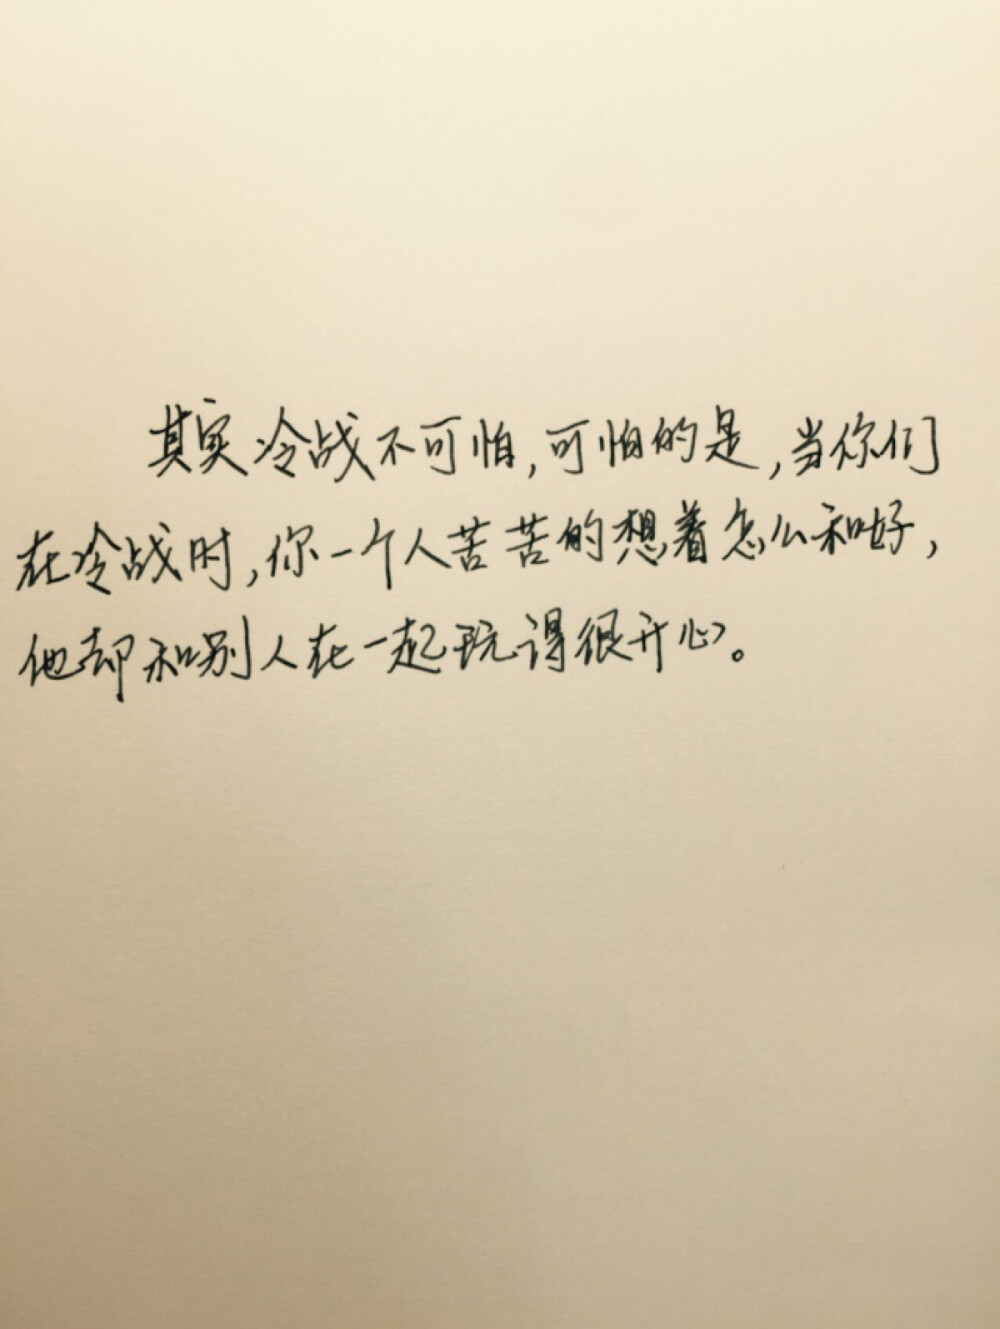 其实冷战不可怕，可怕的是，当你们
在冷战时，你一个人苦苦的想着怎么和好，
他却和别人在一起玩得很开心。